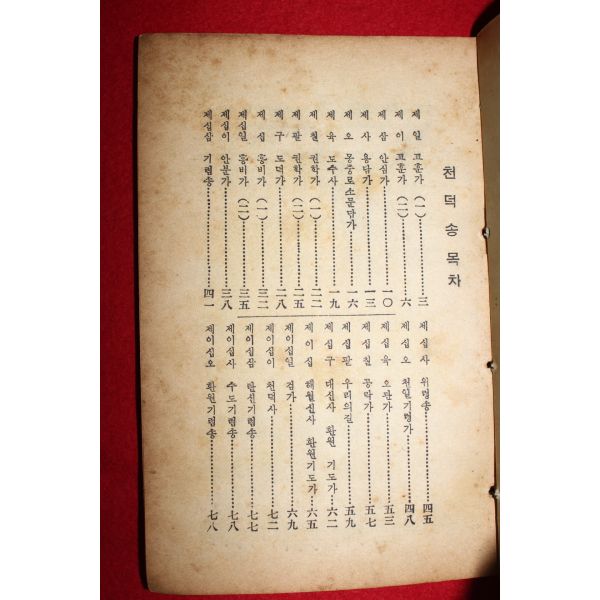 천덕송 목차
제일 교훈가 (一)………三
제이 교훈가 (二)………六
제삼 안심가………一〇
제사 용담가………一三
제오 몽중로소문답가………一六
제육 도수사………一九
제칠 권학가 (一)………二二
제팔 권학가 (二)………二五
제구 도덕가………二八
제십 흥비가 (一)………三二
제십일 흥비가 (二)………三五
제십이 안분가………三八
제십삼 기렴송………四一
제십사 위령송………四五
제십오 천일기렴가………四八
제십육 오관가………五三
제십칠 공락가………五七
제십팔 우리의길………五九
제십구 대신사 환원 기도가………六二
제이십 해월신사 환원기도가………六五
제이십일 검가………六九
제이십이 천덕사………七二
제이십삼 탄신기렴송………七七
제이십사 수도기렴송………七八
제이십오 환원기렴송………七八